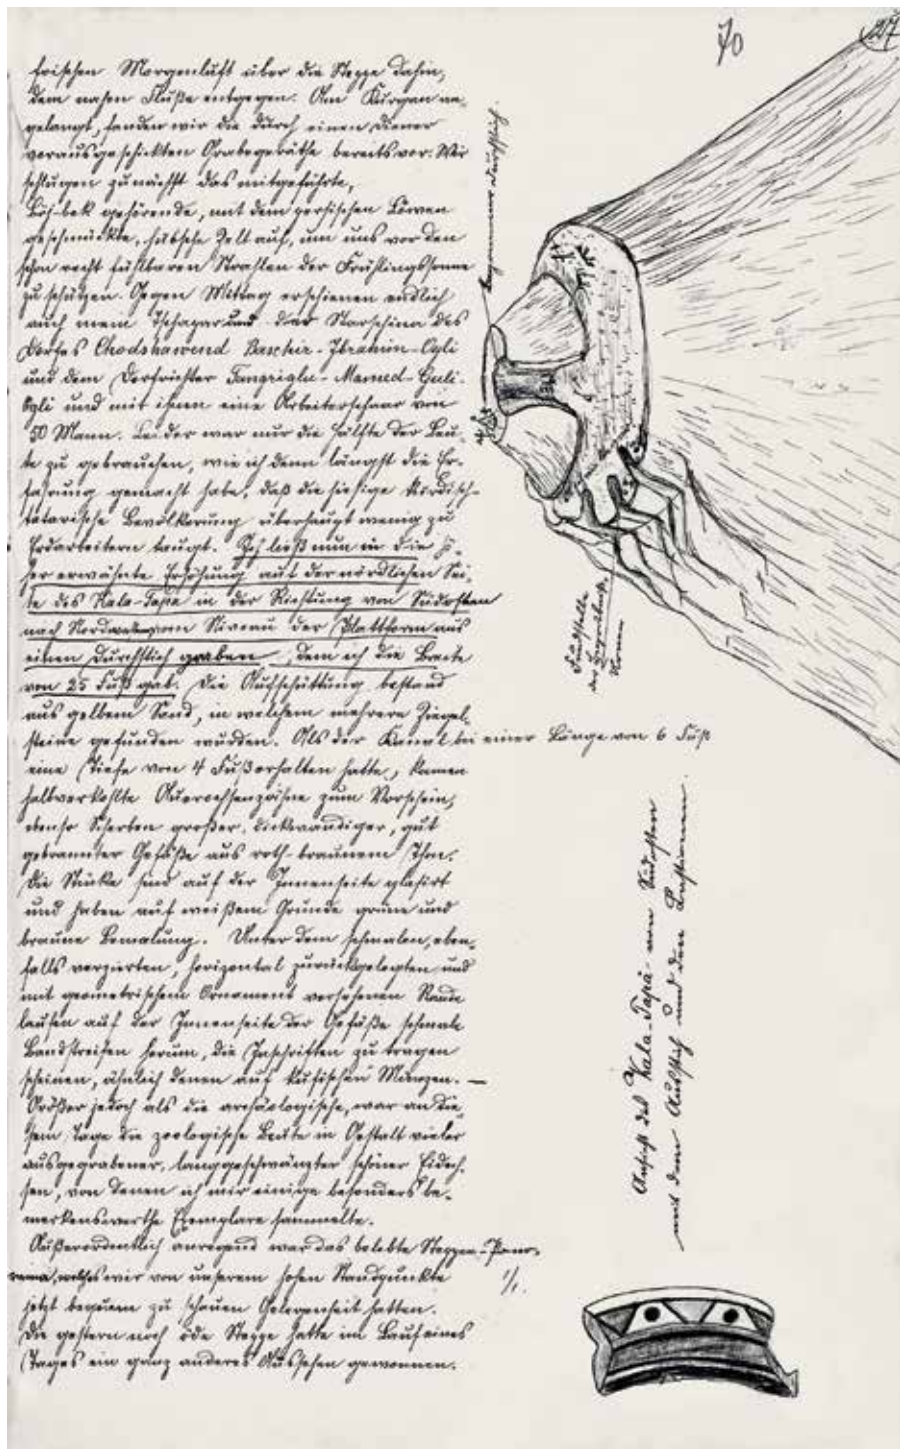 70
27
frischen Morgenluft über die Steppe dahin,
dem nahen Fluße entgegen. Am Kurgan an-
gelangt, fanden wir die durch einen Diener
vorausgeschickten Grabegeräthe bereits vor. Wir
schlugen zunächst das mitgeführte,
Bös-bek gehörende, mit dem persischen Löwen
geschmückte, hübsche Zelt auf, um uns vor den
schon recht fühlbaren Strahlen der Frühlingssonne
zu schützen. Gegen Mittag erschienen endlich
auch mein Tschapar und der Starschina des
Dorfes Chodshawend Baschir-Ibrahim-Ogli
und dem Dorfrichter Tangriglu-Mamed-Guli-
Ogli und mit ihnen eine Arbeiterschaar von
50 Mann. Leider war nur die Hälfte der Leu-
te zu gebrauchen, wie ich denn längst die Er-
fahrung gemacht habe, daß die hiesige kurdisch-
tatarische Bevölkerung überhaupt wenig zu
Erdarbeitern taugt. Ich ließ nun in die
her erwähnte Erhöhung auf der nördlichen Sei-
te des Kala-Tapa in der Richtung von Südosten
nach Nordwesten vom Niveau der Plattform aus
einen Durchstich graben, dem ich die Breite
von 25 Fuß gab. Die Aufschüttung bestand
aus gelbem Sand, in welchem mehrere Ziegel-
steine gefunden wurden. Als der Kanal bei einer Länge von 6 Fuß
eine Tiefe von 4 Fuß erhalten hatte, kamen
halbverkohlte Auerochsenzähne zum Vorschein,
ebenso Scherben großer, dickwandiger, gut
gebrannter Gefäße aus roth-braunem Thon.
Die Stücke sind auf der Innenseite glasirt
und haben auf weißem Grunde grüne und
braune Bemalung. Unter dem schmalen, eben-
falls verzierten, horizontal zurückgelegten und
mit geometrischem Ornament versehenen Rande
laufen auf der Innenseite der Gefäße schmale
Bandstreifen herum, die Inschriften zu tragen
scheinen, ähnlich denen auf kufischen Münzen. —
Größer jedoch als die archäologische, war an die-
sem Tage die zoologische Beute in Gestalt vieler
ausgegrabener, langgeschwänzter schöner Eidech-
sen, von denen ich mir einige besonders be-
merkenswerthe Exemplare sammelte.
Außerordentlich anregend war das belebte Steppen-Pano-
rama, welches wir von unserem hohen Standpunkte
jetzt bequem zu schauen Gelegenheit hatten.
Die gestern noch öde Steppe hatte im Lauf eines
Tages ein ganz anderes Aussehen gewonnen.
Begonnener Durchstich.
Fundstelle
der Begräbniß-
Urnen
Ansicht des Kala-Tapa von Südosten
mit dem Ausstich und den Bastionen.
1/1.